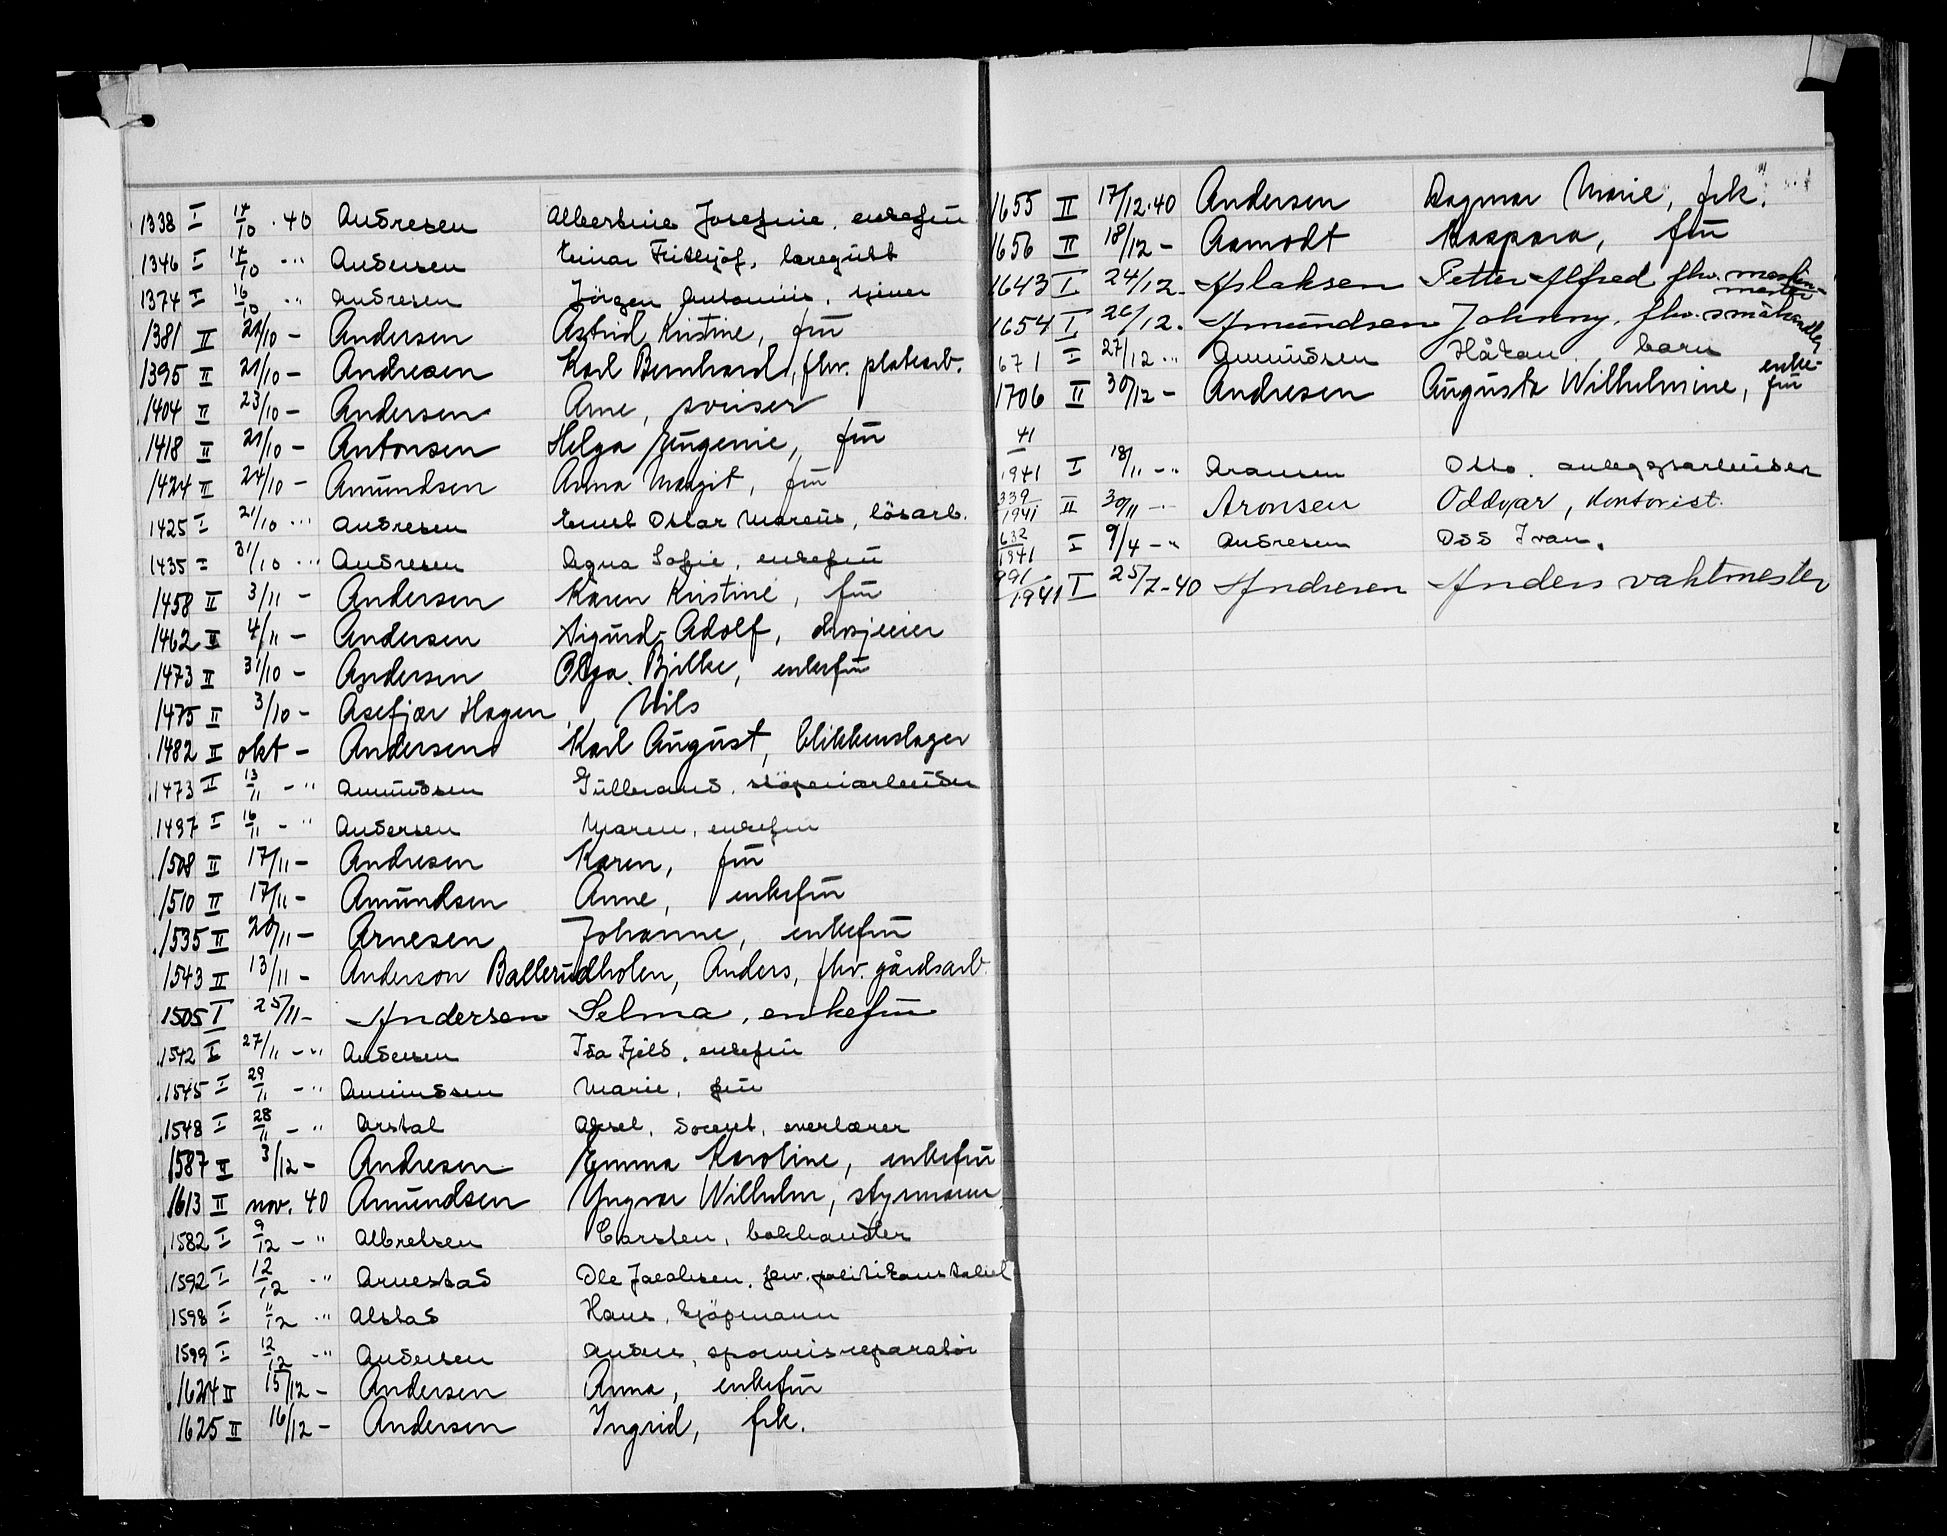 1338 I 14/10 · 40 Andresen Albertine Josefine, enkefrü
1346 I 14/10 - " Andersen Einar Fritthjof, læregutt
1374 I 16/10 - " Andresen Jörgen Antonius,
1381 II 21/10 - Andersen Astrid Kristine, frü
1395 II 21/10 - Andresen Karl Bernhard, fhv. platearb.
1404 II 23/10 - Andersen Arne, sveiser
1418 II 21/10 - Antonsen Helga Eugenie, frü
1424 II 24/10 - Amundsen Anna Margit, frü
1425 I 21/10 - " Andresen Ernst Oskar Marcus, lösarb.
1435 I 31/10 - " Andresen Agna Sofie, enkefrü
1458 II 3/11 - Andersen Karen Kristine, frü
1462 II 4/11 - Andersen Sigurd Adolf,
1473 II 31/10 - Andersen Olga Bjilke, enkefrü
1475 II 3/10 - Asefjær Hagen, Nils
1482 II okt - Andersen Karl August, blikkenslager
1473 I 13/11 - " Amundsen Gulbrand, stöperiarbeider
1497 I 16/11 - " Andersen Maren, enkefrü
1508 II 17/11 - Andresen Karen, frü
1510 II 17/11 - Amundsen Anne, enkefrü
1535 II 20/11 - Arnesen Johanne, enkefrü
1543 II 13/11 - Anderson Ballerudholen, Anders, fhv. gårdsarb.
1505 I 25/11 - Andersen Selma, enkefrü
1542 I 27/11 - " Andersen Ida Fjeld, enkefrü
1545 I 29/11 - " Amundsen Marie, frü
1548 I 28/11 - " Arstal Aksel, docent, overlærer
1587 II 3/12 - Andresen Emma Karoline, enkefrü
1613 II nov. 40 Amundsen Yngvar Wilhelm, styrmann
1582 I 9/12 - " Albretsen Carsten, bokhandler
1592 I 12/12 - " Arnestad Ole Jacobsen, fhv. politikonstabel
1598 I 11/12 - " Alstad Hans, kjöpmann
1599 I 12/12 - " Andersen Anders, sporveisreparatör
1624 II 15/12 - Andersen Anna, enkefrü
1625 II 16/12 - Andersen Ingrid, frk.
1655 II 17/12·40 Andersen Dagmar Marie, frk.
1656 II 18/12 - Aamodt Kaspara, frü
1643 I 24/12 - Aslaksen Petter Alfred fhv. maskin-
mester
1654 I 26/12 - Amundsen Johnny, fhv. småhandler
671 I 27/12 - " Amundsen Håkan, barn
1706 II 30/12 - Andresen Augusta Wilhelmine, enke-
frü
41
1941 I 18/11 - " Aransen Otto, anleggsarbeider
339/1941 II 30/11 - Aronsen Oddvar, kontorist.
632/1941 I 9/4 - " Andresen Odd Ivan.
991/1941 I 25/7-40 Andresen Anders vaktmester